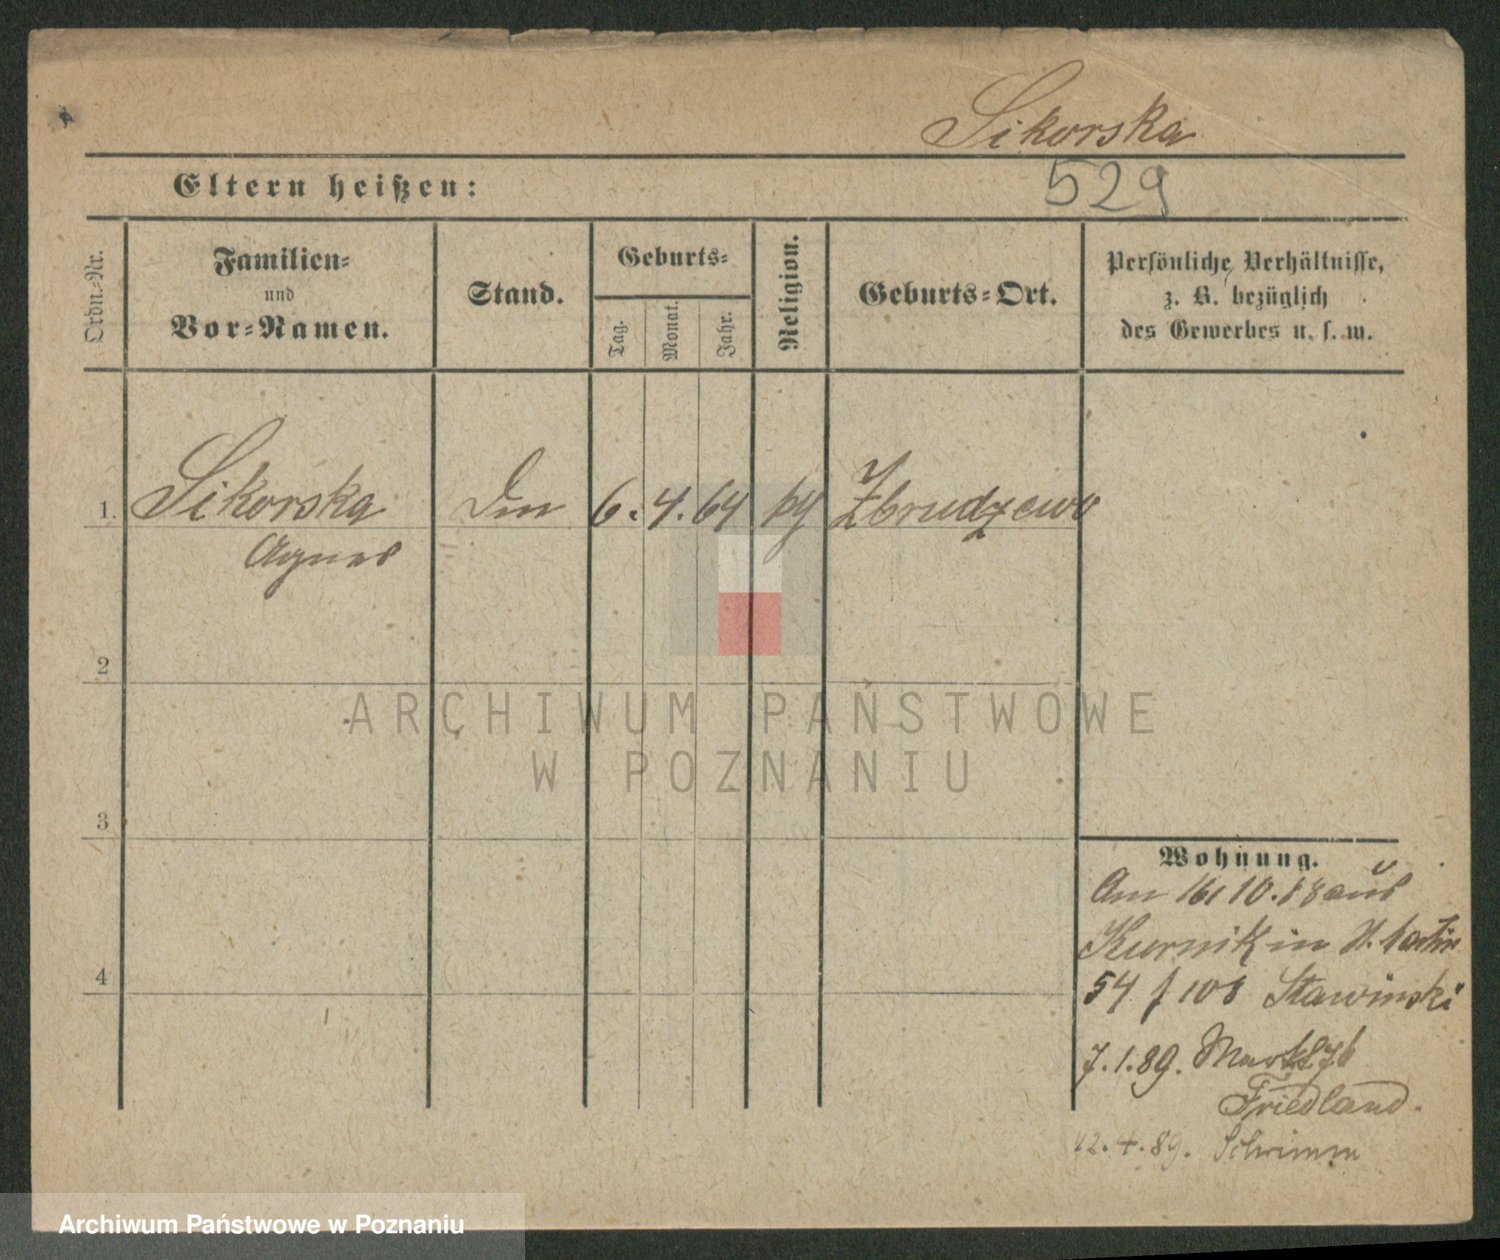 Sikorska
Eltern heißen:
529
Ordn.-Nr.
Familien-
und
Vor-Namen.
Stand.
Geburts-
Tag.
Monat.
Jahr.
Religion.
Geburts-Ort.
Persönliche Verhältnisse,
z. B. bezüglich
des Gewerbes u. s. w.
1. Sikorska 6. 4. 64 Zbrudzewo
Agnes
2
3
4
Wohnung.
Am 16/10.88 aus
Kurnik in St. Martin
54 108 Stawinski
7.1.89. Markt
Friedland.
12.4.89. Schrimm
ARCHIWUM PAŃSTWOWE
W POZNANIU
Archiwum Państwowe w Poznaniu